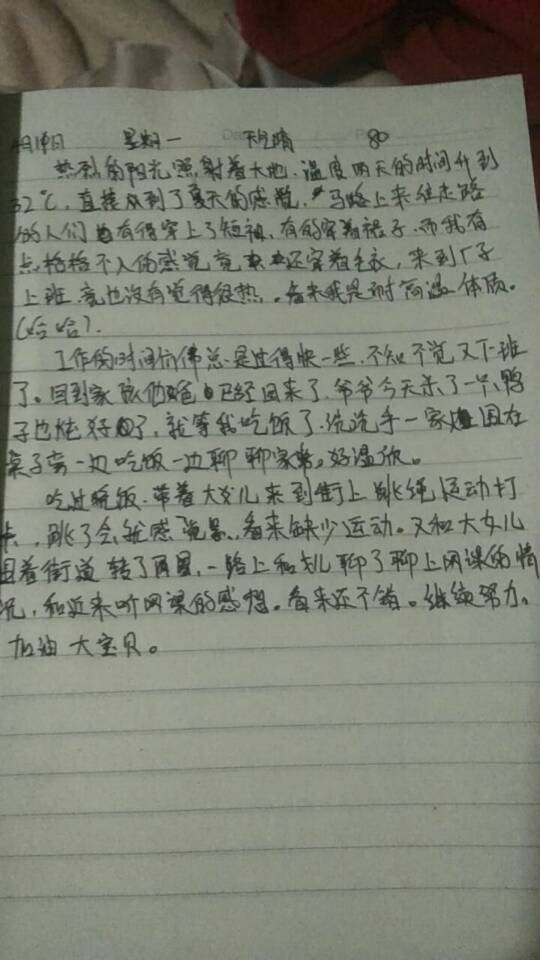 月19日 星期一 天气晴 80
热烈的阳光照射着大地.温度两天的时间升到
32℃.直接从到了夏天的感觉,马路上来往走路
的人们有得穿上了短袖,有的穿着裙子.而我有
点格格不入的感觉竟还穿着毛衣,来到厂子
上班竟也没有觉得很热.看来我是耐高温体质.
(哈哈).
工作的时间仿佛总是过得快一些,不知不觉又下班
了。回到家 已经回来了,爷爷今天杀了一只鸭
子也炖好了,就等我吃饭了.洗洗手一家围在
桌子旁一边吃饭一边聊聊家常。好温欣。
吃过晚饭.带着大女儿来到街上跳绳运动打
卡,跳了会就感觉累.看来缺少运动。又和大女儿
围着街道转了两圈,一路上和女儿聊了聊上网课的情
况,和近来听网课的感想。看来还不错。继续努力,
加油大宝贝。